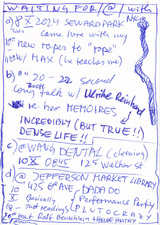 WAITING FOR / with
a) 8 X 2024 SEWARD PARK
came here with my
10 new ropes to "rope"
w/ MAX (he teaches me)
b) 20 - 22 second
long talk w/ Ulrike Reinhard
re her MEMOIRES
INCREDIBLY (BUT TRUE!!)
DENSE LIFE!!
c) @ WANG DENTAL (cleaning)
10 X 0845 125 Walker St
d) @ JEFFERSON MARKET LIBRARY
10 425 6th AVE DADA DO
X Basically Performance Poetry
18 - readings PLUTOCRAZY